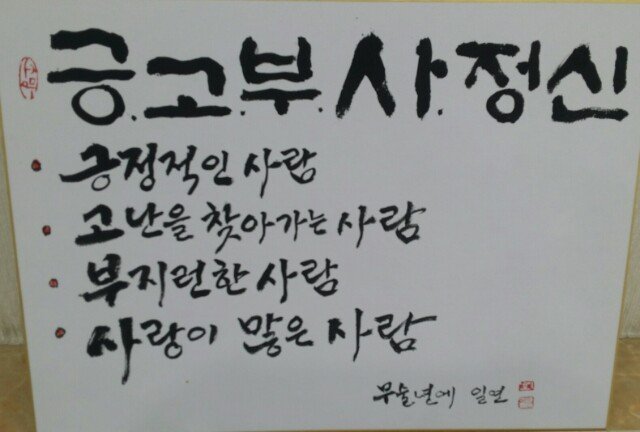 긍.고.부.사.정신
긍정적인 사람
고난을 찾아가는 사람
부지런한 사람
사랑이 많은 사람
무술년에 일연